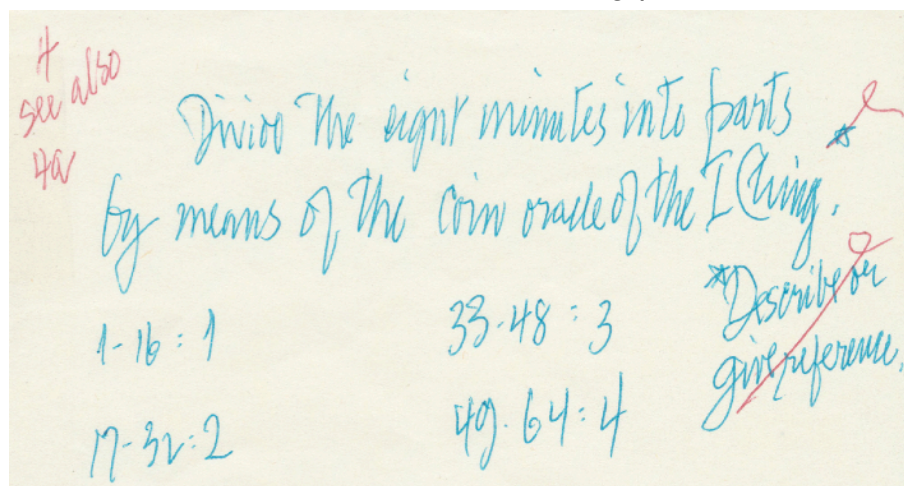 4
see also
4a
Divide the eight minutes into parts *
by means of the coin oracle of the I Ching.
1-16 : 1
33-48 : 3
*Describe or
give reference.
17-32 : 2
49-64 : 4